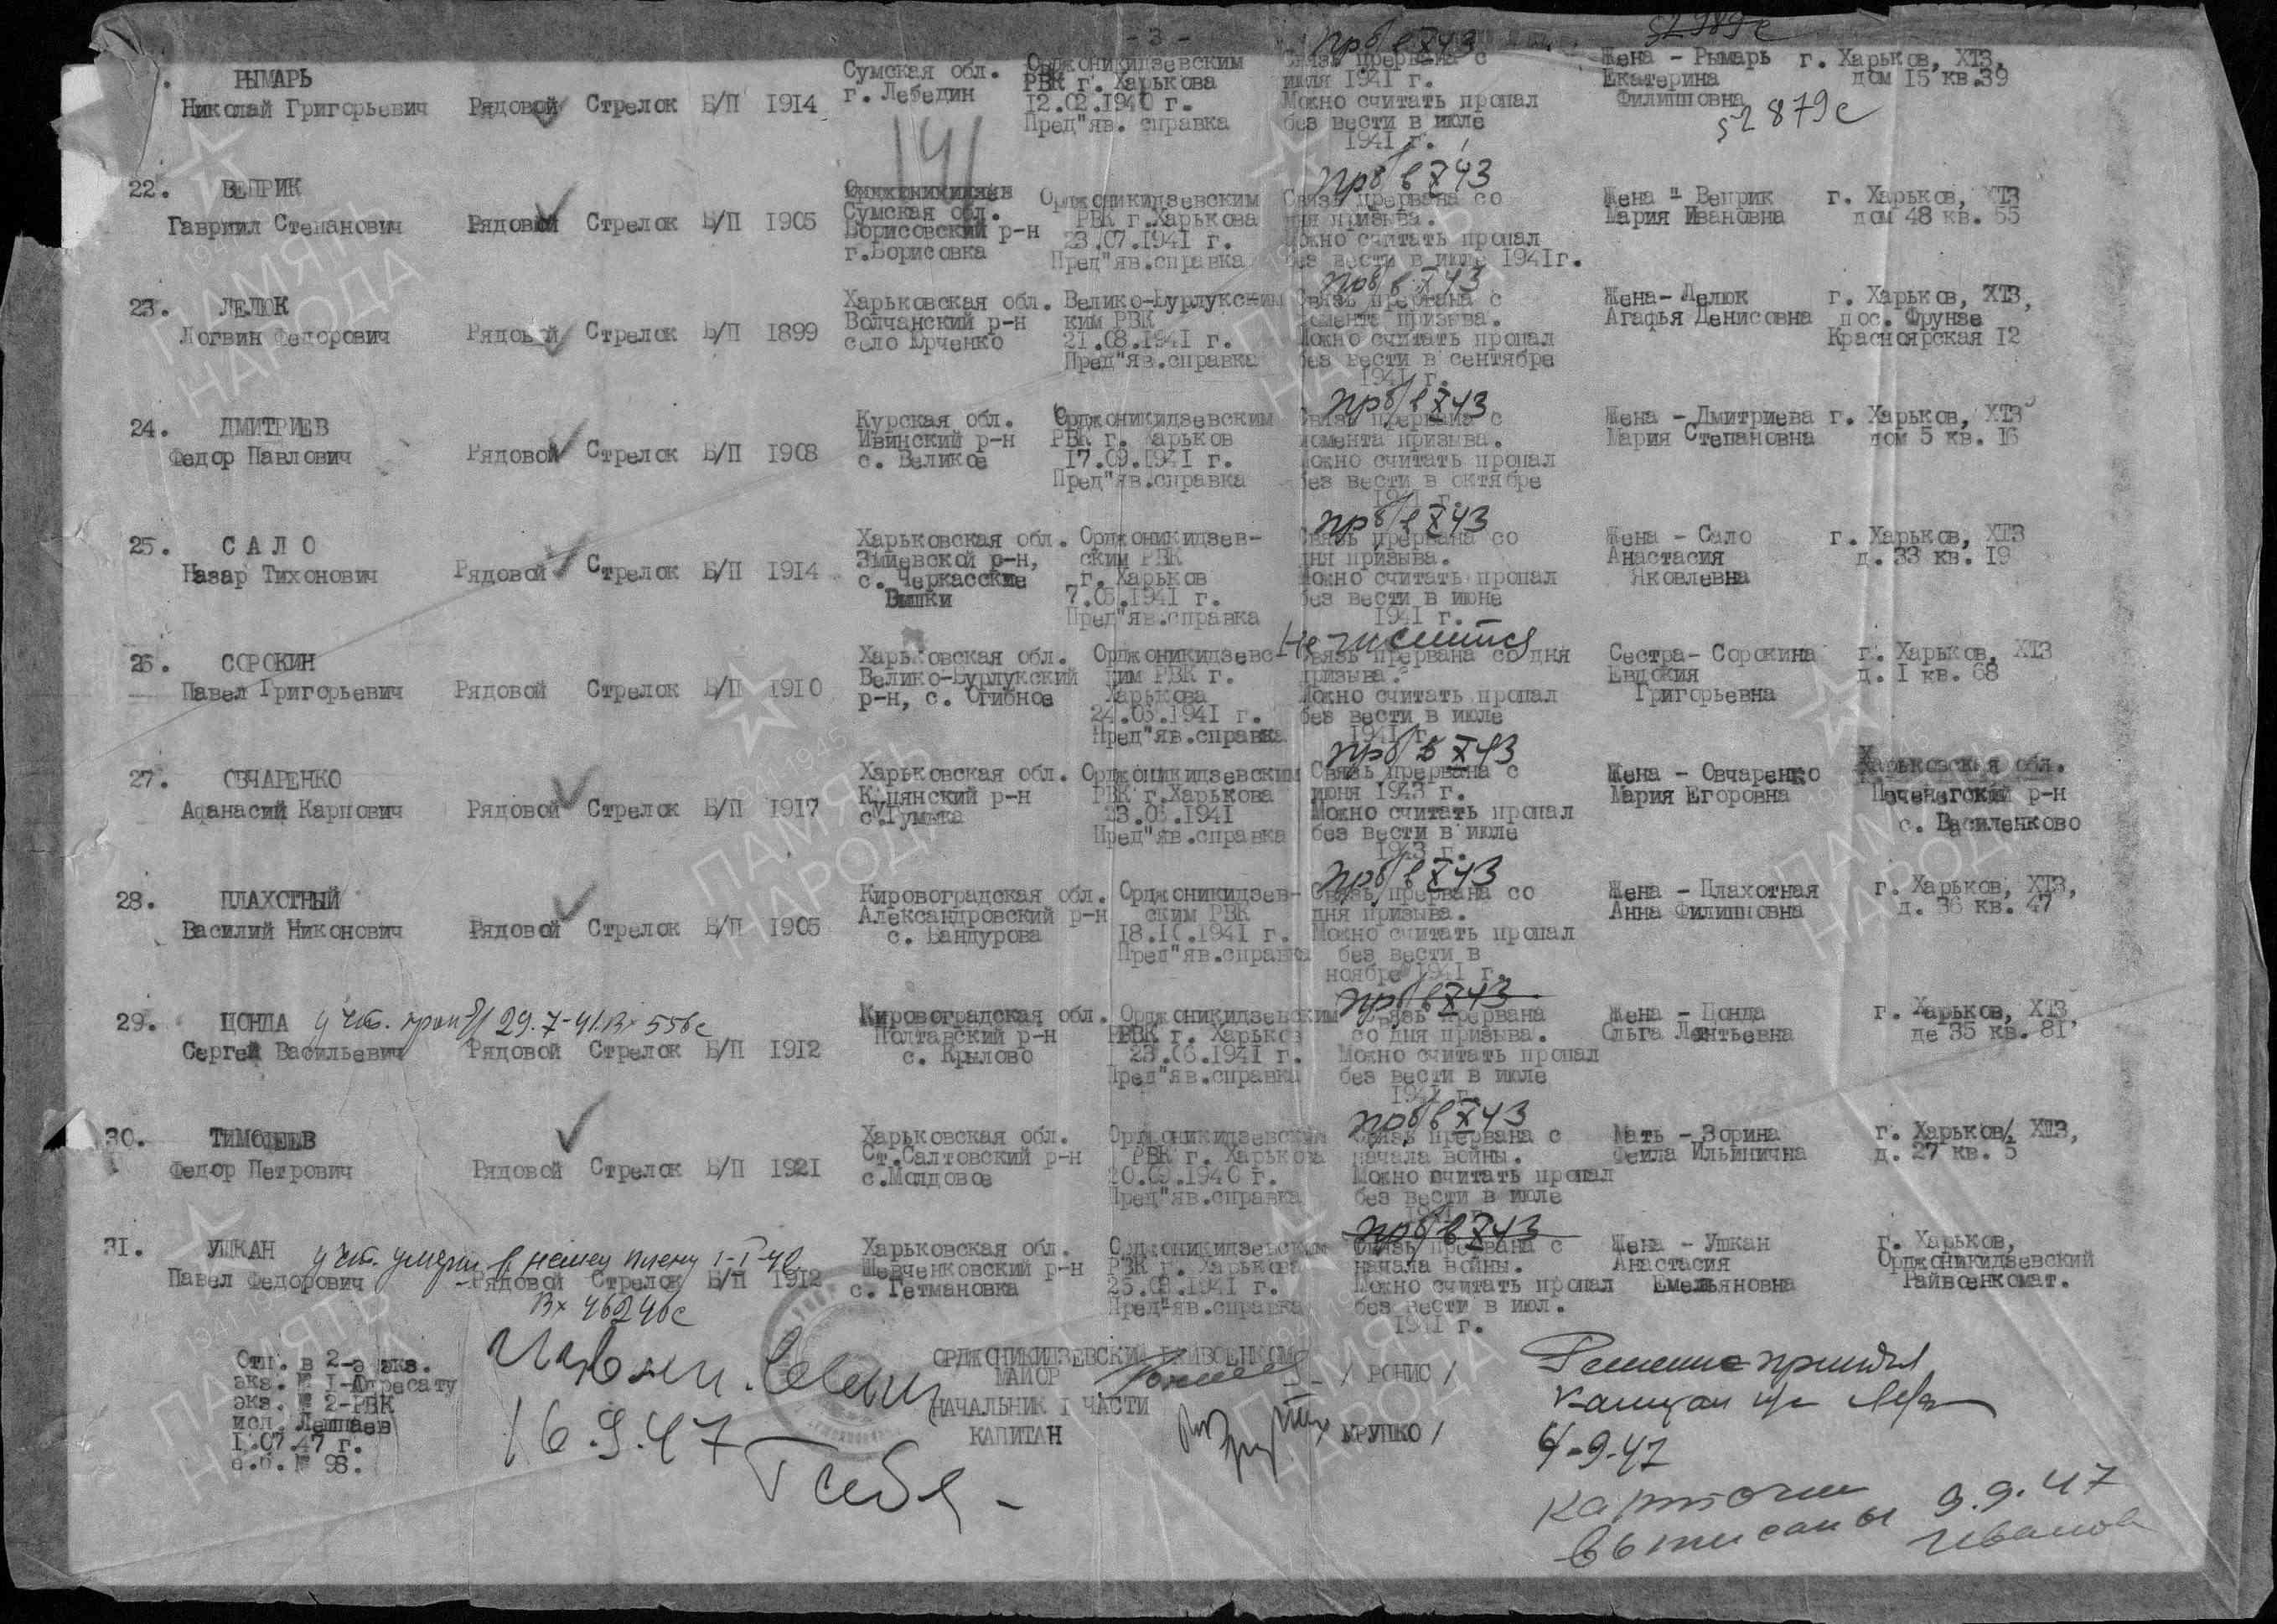 - 3 -
прб/в X 43
52989с
РЫМАРЬ
Николай Григорьевич Рядовой Стрелок Б/П 1914
Сумская обл.
г. Лебедин
Орджоникидзевским
РВК г. Харькова
12.02.1940 г.
Пред"яв. справка
Связь прервана с
июля 1941 г.
Можно считать пропал
без вести в июле
1941 г.
Жена - Рымарь
Екатерина
Филипповна
г. Харьков, ХТЗ,
дом 15 кв.39
52879с
141
прб/в X 43
22. ВЕПРИК
Гавриил Степанович Рядовой Стрелок Б/П 1905
Сумская обл.
Борисовский р-н
г.Борисовка
Орджоникидзевским
РВК г.Харькова
23.07.1941 г.
Пред"яв.справка
Связь прервана со
дня призыва.
Можно считать пропал
без вести в июле 1941г.
Жена - Веприк
Мария Ивановна
г. Харьков, ХТЗ
дом 48 кв. 55
прб/в X 43
23. ЛЕЛЮК
Логвин Федорович Рядовой Стрелок Б/П 1899
Харьковская обл.
Волчанский р-н
село Юрченко
Велико-Бурлукским
ким РВК
21.08.1941 г.
Пред"яв.справка
Связь прервана с
момента призыва.
Можно считать пропал
без вести в сентябре
1941 г.
Жена- Лелюк
Агафья Денисовна
г. Харьков, ХТЗ,
пос. Фрунзе
Красноярская 12
прб/в X 43
24. ДМИТРИЕВ
Федор Павлович Рядовой Стрелок Б/П 1908
Курская обл.
Ивнский р-н
с. Великое
Орджоникидзевским
РВК г. Харьков
17.09.1941 г.
Пред"яв.справка
Связь прервана с
момента призыва.
Можно считать пропал
без вести в октябре
1941 г.
Жена - Дмитриева
Мария Степановна
г. Харьков, ХТЗ
дом 5 кв. 16
прб/в X 43
25. САЛО
Назар Тихонович Рядовой Стрелок Б/П 1914
Харьковская обл.
Змиевской р-н,
с. Черкасские
Вишки
Орджоникидзев-
ским РВК
г. Харьков
7.05.1941 г.
Пред"яв.справка
Связь прервана со
дня призыва.
Можно считать пропал
без вести в июне
1941 г.
Жена - Сало
Анастасия
Яковлевна
г. Харьков, ХТЗ
д. 33 кв. 19
Не числится
26. СОРОКИН
Павел Григорьевич Рядовой Стрелок Б/П 1910
Харьковская обл.
Велико-Бурлукский
р-н, с. Огибное
Орджоникидзевс-
ким РВК г.
Харькова
24.06.1941 г.
Пред"яв.справка
Связь прервана со дня
призыва.
Можно считать пропал
без вести в июле
1941 г.
Сестра- Сорокина
Евдокия
Григорьевна
г. Харьков, ХТЗ
д. 1 кв. 68
прб/в X 43
27. ОВЧАРЕНКО
Афанасий Карпович Рядовой Стрелок Б/П 1917
Харьковская обл.
Купянский р-н
Орджоникидзевским
РВК г.Харькова
23.06.1941
Пред"яв.справка
Связь прервана с
июня 1943 г.
Можно считать пропал
без вести в июле
1943 г.
Жена - Овчаренко
Мария Егоровна
Харьковская обл.
Печенегский р-н
с. Василенково
прб/в X 43
28. ПЛАХОТНЫЙ
Василий Никонович Рядовой Стрелок Б/П 1905
Кировоградская обл.
Александровский р-н
с. Бандурова
Орджоникидзев-
ским РВК
18.10.1941 г.
Пред"яв.справка
Связь прервана со
дня призыва.
Можно считать пропал
без вести в
ноябре 1941 г.
Жена - Плахотная
Анна Филипповна
г. Харьков, ХТЗ,
д. 36 кв. 47
прб/в X 43
29. ЦОНДА учт. проп б/в 29.7-41. Вх 556с
Сергей Васильевич Рядовой Стрелок Б/П 1912
Кировоградская обл.
Полтавский р-н
с. Крылово
Орджоникидзевским
РВК г. Харьков
23.06.1941 г.
Пред"яв.справка
Связь прервана
со дня призыва.
Можно считать пропал
без вести в июле
1941 г.
Жена - Цонда
Ольга Леонтьевна
г. Харьков, ХТЗ
де 35 кв. 81
прб/в X 43
30. ТИМОФЕЕВ
Федор Петрович Рядовой Стрелок Б/П 1921
Харьковская обл.
Ст.Салтовский р-н
с.Молдовое
Орджоникидзевским
РВК г. Харькова
20.09.1940 г.
Пред"яв.справка
Связь прервана с
начала войны.
Можно считать пропал
без вести в июле
1941 г.
Мать - Зорина
Феила Ильинична
г. Харьков, ХТЗ,
д. 27 кв. 5
прб/в X 43
31. УШКАН учт. умерш. в немец плену 1-I-42
Павел Федорович Рядовой Стрелок Б/П 1912
Вх 46246с
Харьковская обл.
Шевченковский р-н
с. Гетмановка
Орджоникидзевским
РВК г. Харькова
25.08.1941 г.
Пред"яв.справка
Связь прервана с
начала войны.
Можно считать пропал
без вести в июл.
1941 г.
Жена - Ушкан
Анастасия
Емельяновна
г. Харьков,
Орджоникидзевский
Райвоенкомат.
Отп. в 2-э экз.
экз. № 1-Адресату
экз. № 2-РВК
исп. Лешпаев
1.07.47 г.
с.б. № 98.
16.9.47
ОРДЖОНИКИДЗЕВСКИЙ РАЙВОЕНКОМ
МАЙОР / РОНИС /
НАЧАЛЬНИК 1 ЧАСТИ
КАПИТАН КРУПКО /
Решение принял
капитан
4-9-47
Карточки
выписаны 9.9.47
Иванова
1941 1945
ПАМЯТЬ
НАРОДА